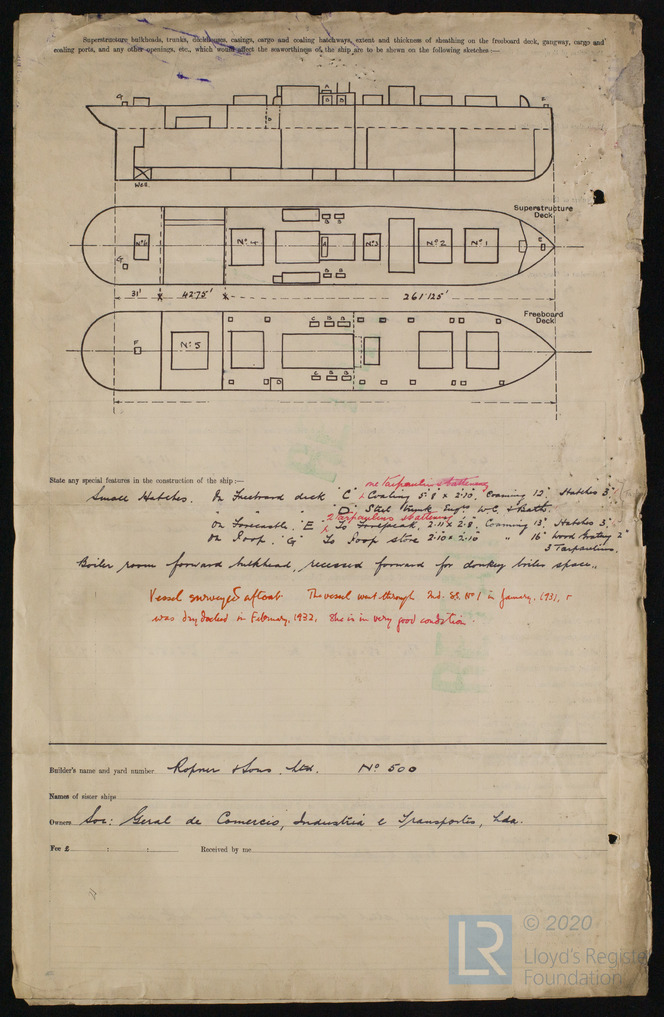 Superstructure bulkheads, trunks, deckhouses, casings, cargo and coaling hatchways, extent and thickness of sheathing on the freeboard deck, gangway, cargo and
coaling ports, and any other openings, etc., which would affect the seaworthiness of the ship are to be shewn on the following sketches:—
G
A
D
D
F
D
Wes
Superstructure
Deck
B B
Nº 6
Nº 4
A
Nº 3
Nº 2
Nº 1
E
G
B B
31'
42·75'
261·125'
Freeboard
Deck
C B B
F
Nº 5
D
C B B
State any special features in the construction of the ship:—
one Tarpaulin & battening
Small Hatches. On Freeboard deck "C" Coaling 5'8" x 2'10" Coaming 12" Hatches 3"
" " "D" Steel trunk Engrs W.C. & Bath.
2 Tarpaulins & battening
On Forecastle "E" To Forepeak, 2'11 x 2'8. Coaming 13" Hatches 3"
On Poop. "G" To Poop store 2'10 x 2'10 " 16" Wood 2"
3 Tarpaulins.
Boiler room forward bulkhead, recessed forward for donkey boiler space.
Vessel surveyed afloat. The vessel went through 2nd. SS. Nº 1 in January, 1931,
was dry docked in February, 1932, She is in very good condition.
Builder's name and yard number Ropner & Sons. Ltd. Nº 500
Names of sister ships
Owners Soc: Geral de Comercio, Industria e Transportes, Lda.
Fee £ : : Received by me
LR
© 2020
Lloyd's Register
Foundation